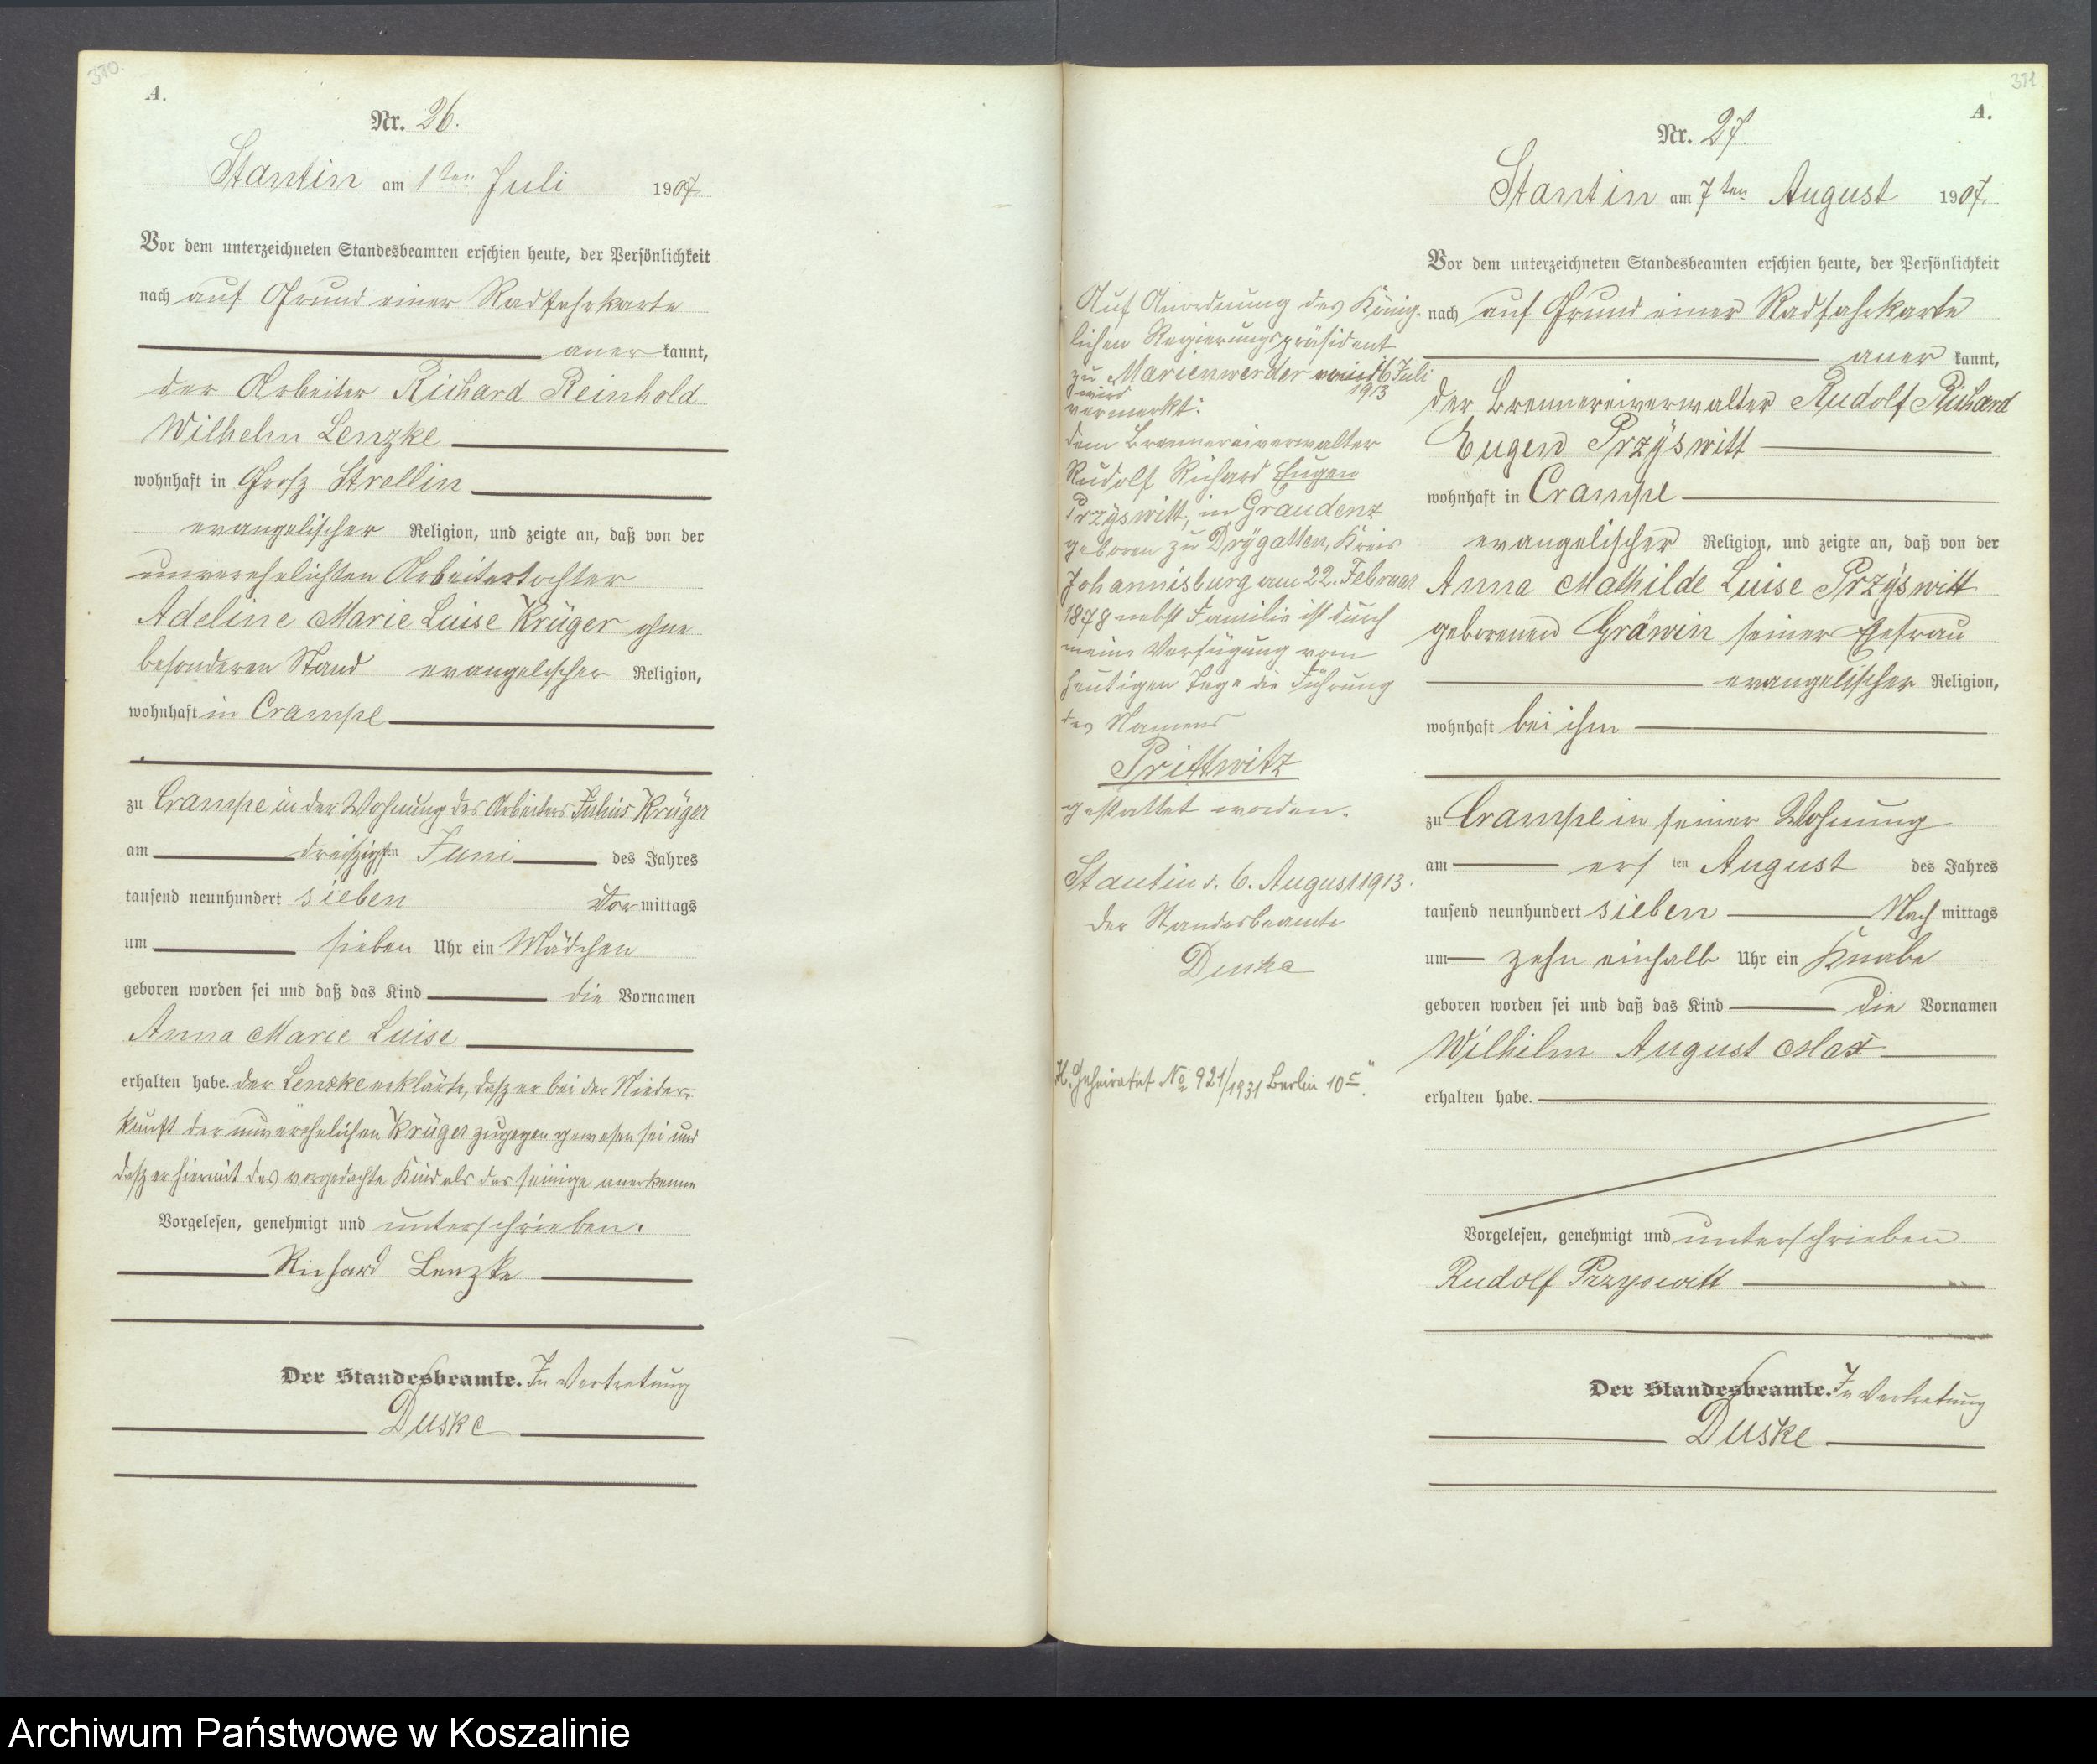 370.
A.
Nr. 26.
Stantin am 1ten Juli 1907
Vor dem unterzeichneten Standesbeamten erschien heute, der Persönlichkeit
nach auf Grund einer Radfahrkarte
aner kannt,
der Arbeiter Richard Reinhold
Wilhelm Lenzke
wohnhaft in Grosz Strellin
evangelischer Religion, und zeigte an, daß von der
unverehelichten Arbeitertochter
Adeline Marie Luise Krüger ohne
besonderen Stand evangelischer Religion,
wohnhaft in Crampe
zu Crampe in der Wohnung des Arbeiters Julius Krüger
am dreiszigsten Juni des Jahres
tausend neunhundert sieben Vor mittags
um sieben Uhr ein Mädchen
geboren worden sei und daß das Kind die Vornamen
Anna Marie Luise
erhalten habe. der Lenzke erklärte, dasz er bei der Nieder-
kunft der unverehelichen Krüger zugegen gewesen sei und
dasz er hiermit das vorgedachte Kind als das seinige anerkenne
Vorgelesen, genehmigt und unterschrieben.
Richard Lenzke
Der Standesbeamte. In Vertretung
Duske
371
A.
Nr. 27.
Stantin am 7ten August 1907.
Vor dem unterzeichneten Standesbeamten erschien heute, der Persönlichkeit
nach auf Grund einer Radfahrkarte
aner kannt,
der Brennereiverwalter Rudolf Richard
Eugen Przÿswitt
wohnhaft in Crampe
evangelischer Religion, und zeigte an, daß von der
Anna Mathilde Luise Przÿswitt
geborenen Gräwin seiner Ehefrau
evangelischer Religion,
wohnhaft bei ihm
zu Crampe in seiner Wohnung
am ers ten August des Jahres
tausend neunhundert sieben Nach mittags
um zehn einhalb Uhr ein Knabe
geboren worden sei und daß das Kind die Vornamen
Wilhelm August Max
erhalten habe.
Vorgelesen, genehmigt und unterschrieben
Rudolf Przyswitt
Der Standesbeamte. In Vertretung
Duske
Auf Anordnung des König-
lichen Regierungspräsident
zu Marienwerder vom 16 Juli
1913
wird
vermerkt:
dem Brennereiverwalter
Rudolf Richard Eugen
Przÿswitt, in Graudenz
geboren zu Drÿgallen, Kreis
Johannisburg am 22. Februar
1878 nebst Familie ist durch
meine Verfügung vom
heutigen Tage die Führung
des Namens
Prittwitz
gestattet worden.
Stantin d. 6. August 1913.
Der Standesbeamte
Duske
H. Geheiratet No 921/1931 Berlin 10c.
Archiwum Państwowe w Koszalinie